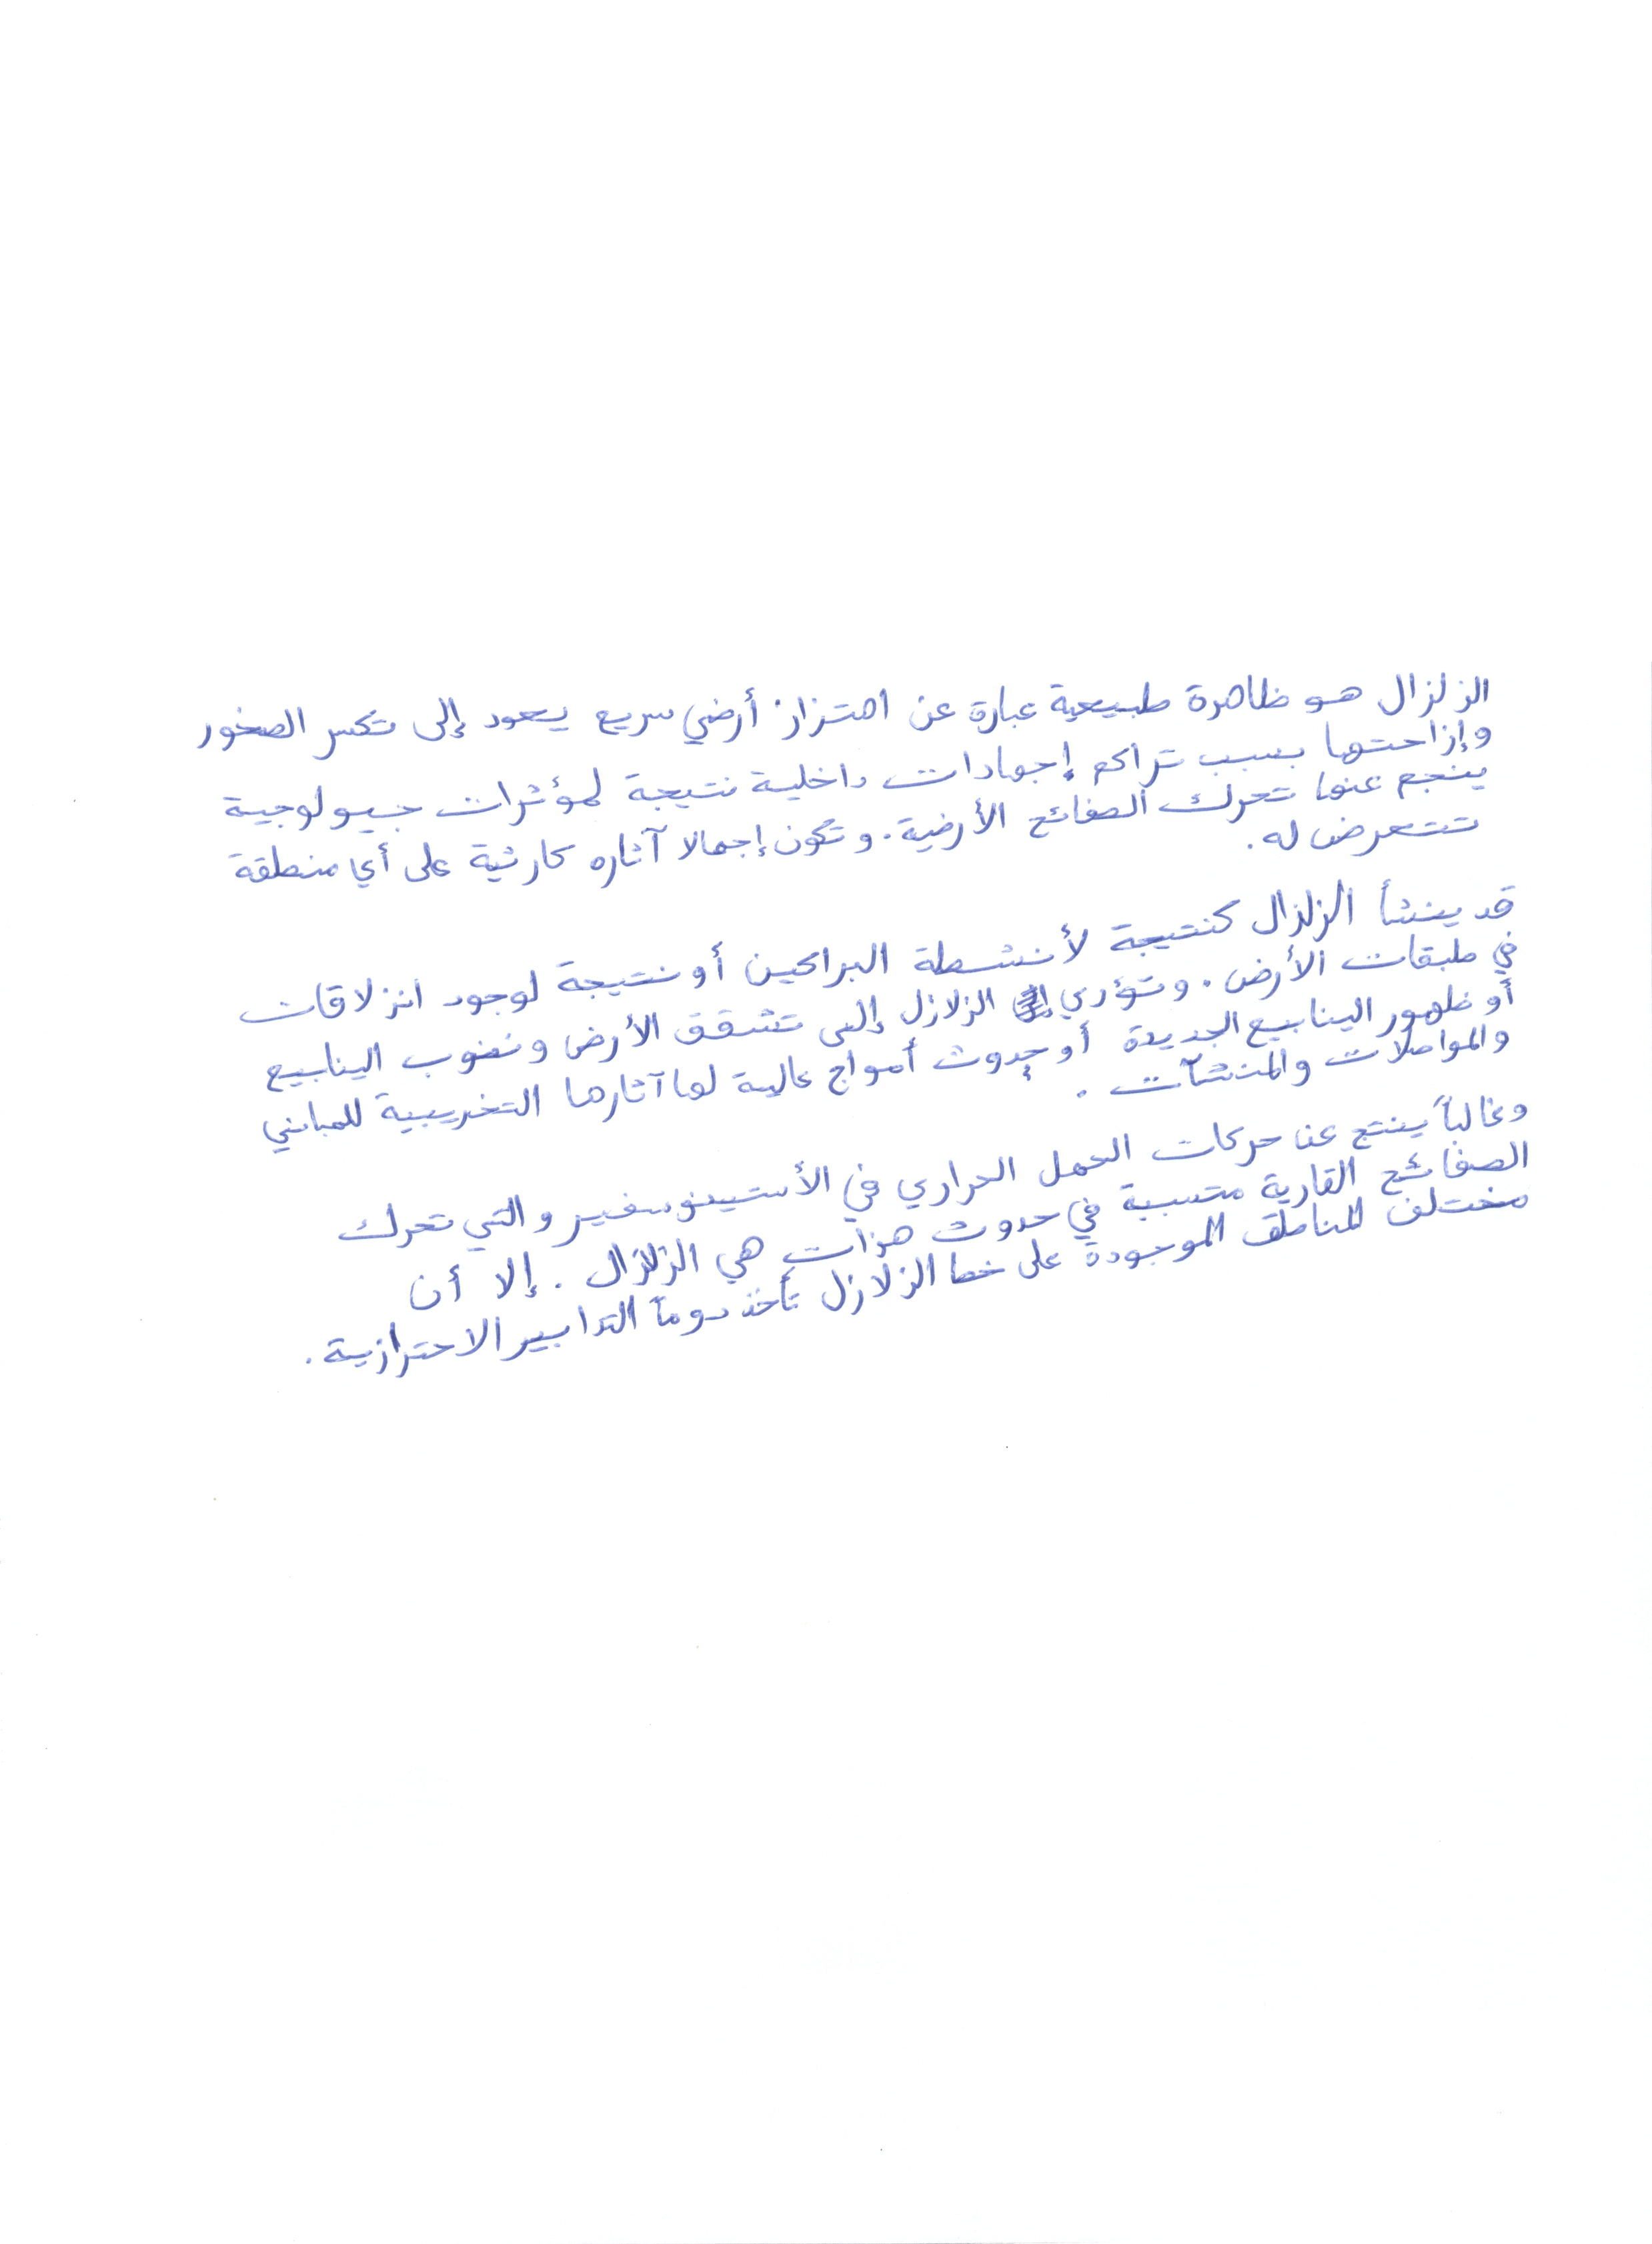 الزلزال هو ظاهرة طبيعية عبارة عن اهتزاز أرضي سريع يعود إلى تكسر الصخور
وإزاحتها بسبب تراكم إجهادات داخلية نتيجة لمؤثرات جيولوجية
ينجم عنها تحرك الصفائح الأرضية. وتكون إجمالا آثاره كارثية على أي منطقة
تتعرض له.
قد ينشأ الزلزال كنتيجة لأنشطة البراكين أو نتيجة لوجود انزلاقات
في طبقات الأرض. وتؤدي الزلازل إلى تشقق الأرض ونضوب الينابيع
أو ظهور الينابيع الجديدة أو حدوث أمواج عالية لها آثارها التخريبية للمباني
والمواصلات والمنشآت.
وغالباً ينتج عن حركات الحمل الحراري في الأستينوسفير والتي تحرك
الصفائح القارية متسببة في حدوث هزات هي الزلزال. إلا أن
مختلف المناطق الموجودة على خط الزلازل تأخذ دوماً التدابير الاحترازية.